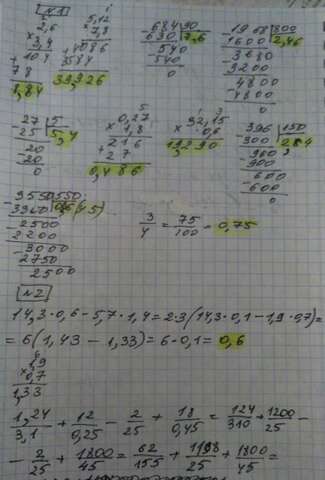 N1
2,6
× 3,4
+ 104
78
8,84
5,12
× 7,8
+ 4086
3584
39,936
684 90
- 630 7,6
- 540
- 540
0
- 1968 800
1600 2,46
- 3680
3200
- 4800
- 4800
0
- 27 5
25 5,4
- 20
- 20
0
0,27
× 1,8
+ 216
27
0,486
× 32,15
0,6
19,290
- 396 150
300 2,64
- 960
900
- 600
- 600
0
- 3550 550
- 2500
2200
- 3000
2750
2500
3/4 = 75/100 = 0,75
N2
14,3·0,6 - 5,7·1,4 = 2·3(14,3·0,1 - 1,9·0,7) =
= 6(1,43 - 1,33) = 6·0,1 = 0,6
× 1,9
0,7
1,33
1,24/3,1 + 12/0,25 - 2/25 + 18/0,45 = 124/310 + 1200/25 -
- 2/25 + 1800/45 = 62/155 + 1198/25 + 1800/45 =